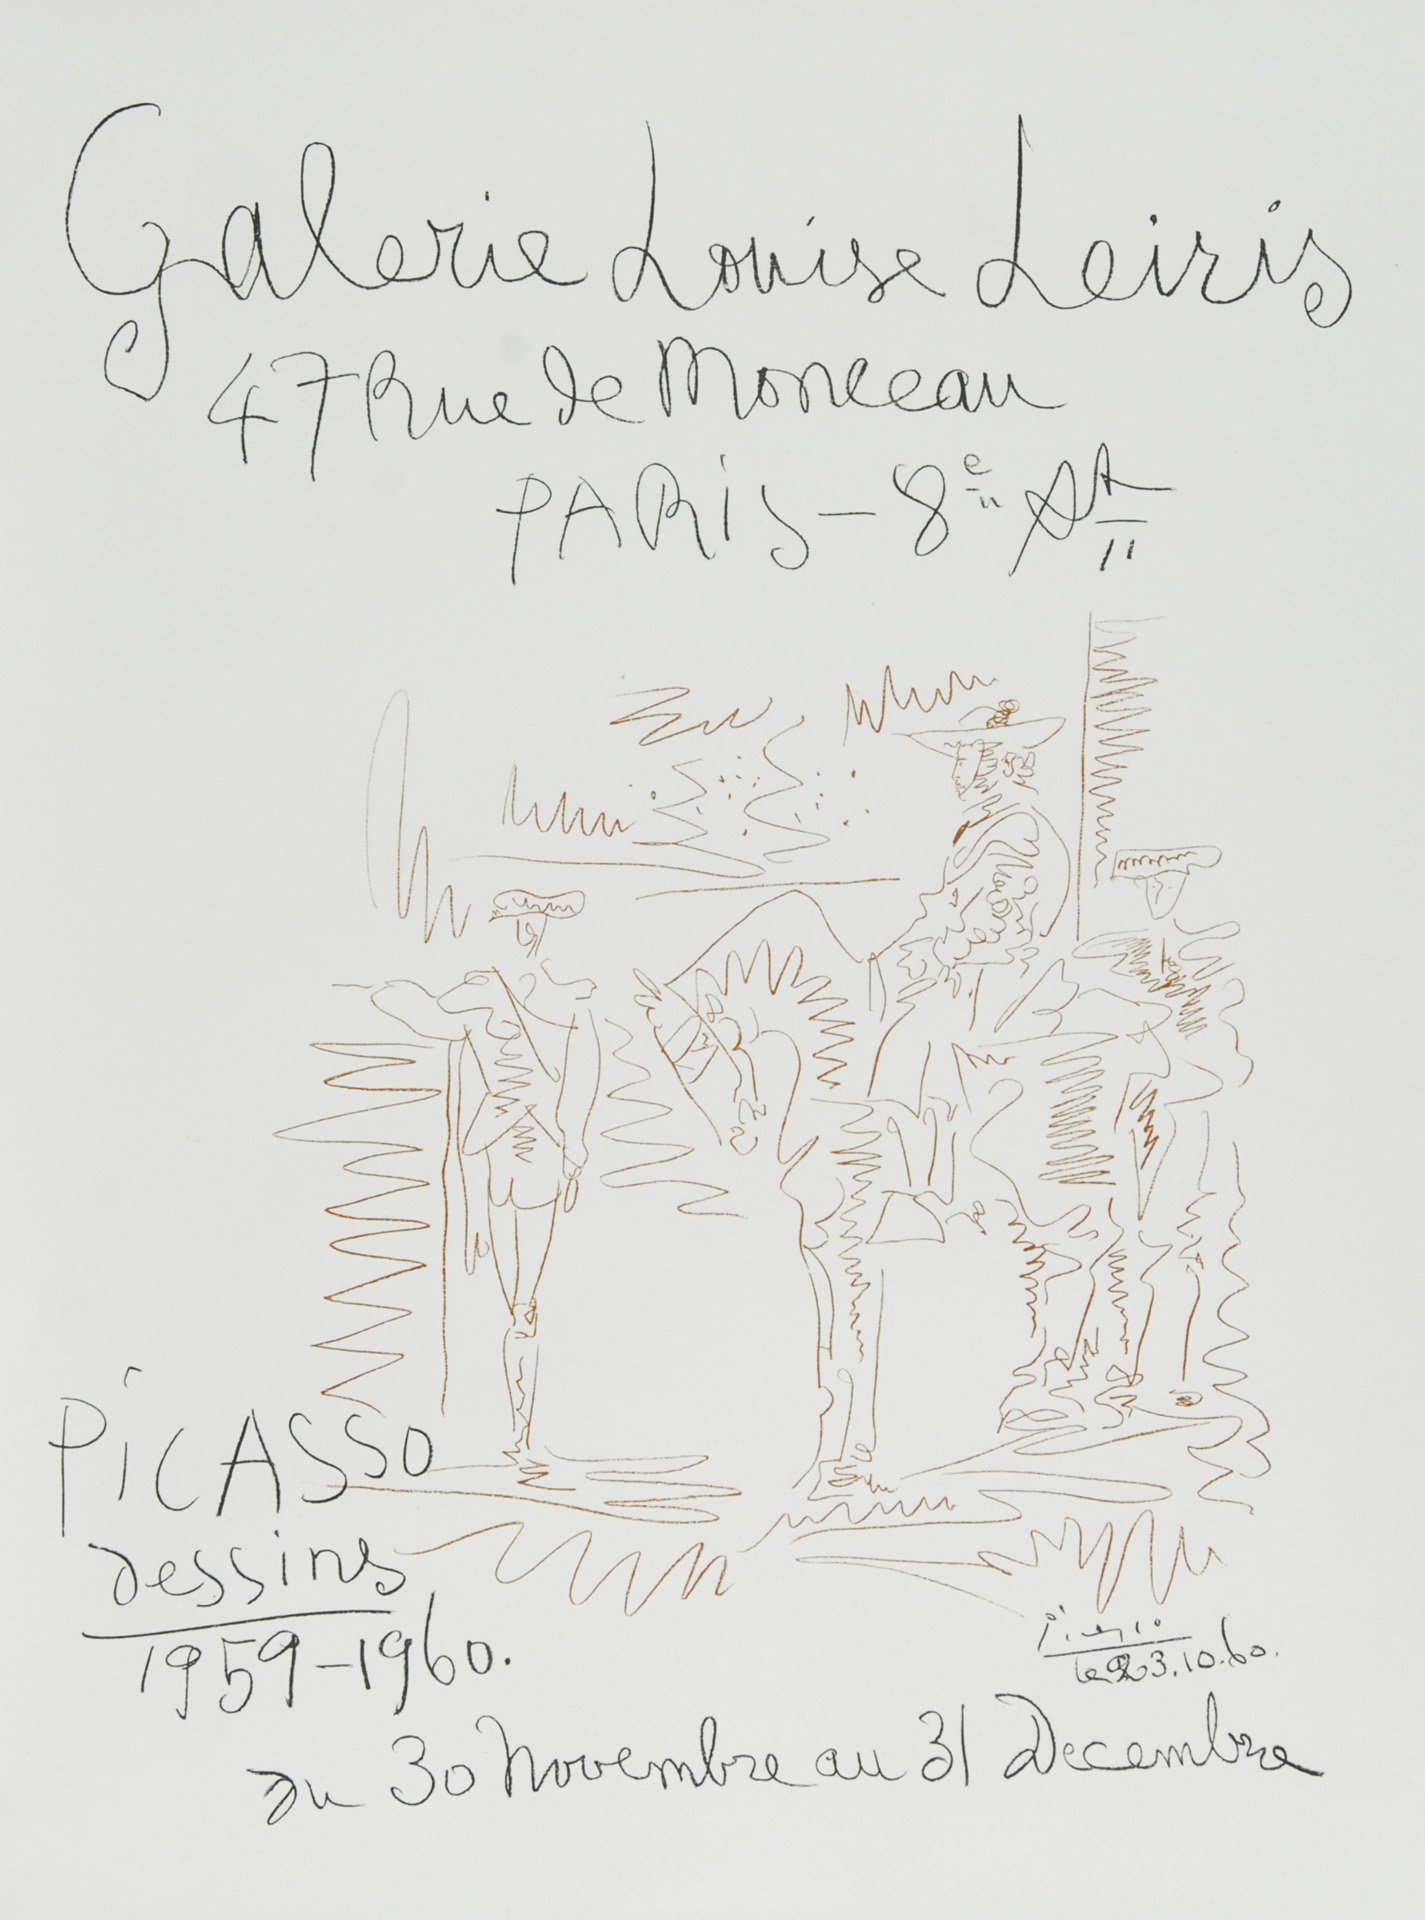 Galerie Louise Leiris
47 Rue de Monceau
PARiS – 8e At
PiCASSO
dessins
1959–1960.
du 30 Novembre au 31 Decembre
Picasso
le 23.10.60.